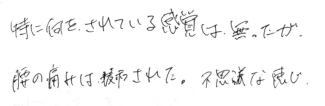 特に何を、されている感覚は、無ったが、
腰の痛みは、緩和された。不思議な感じ。